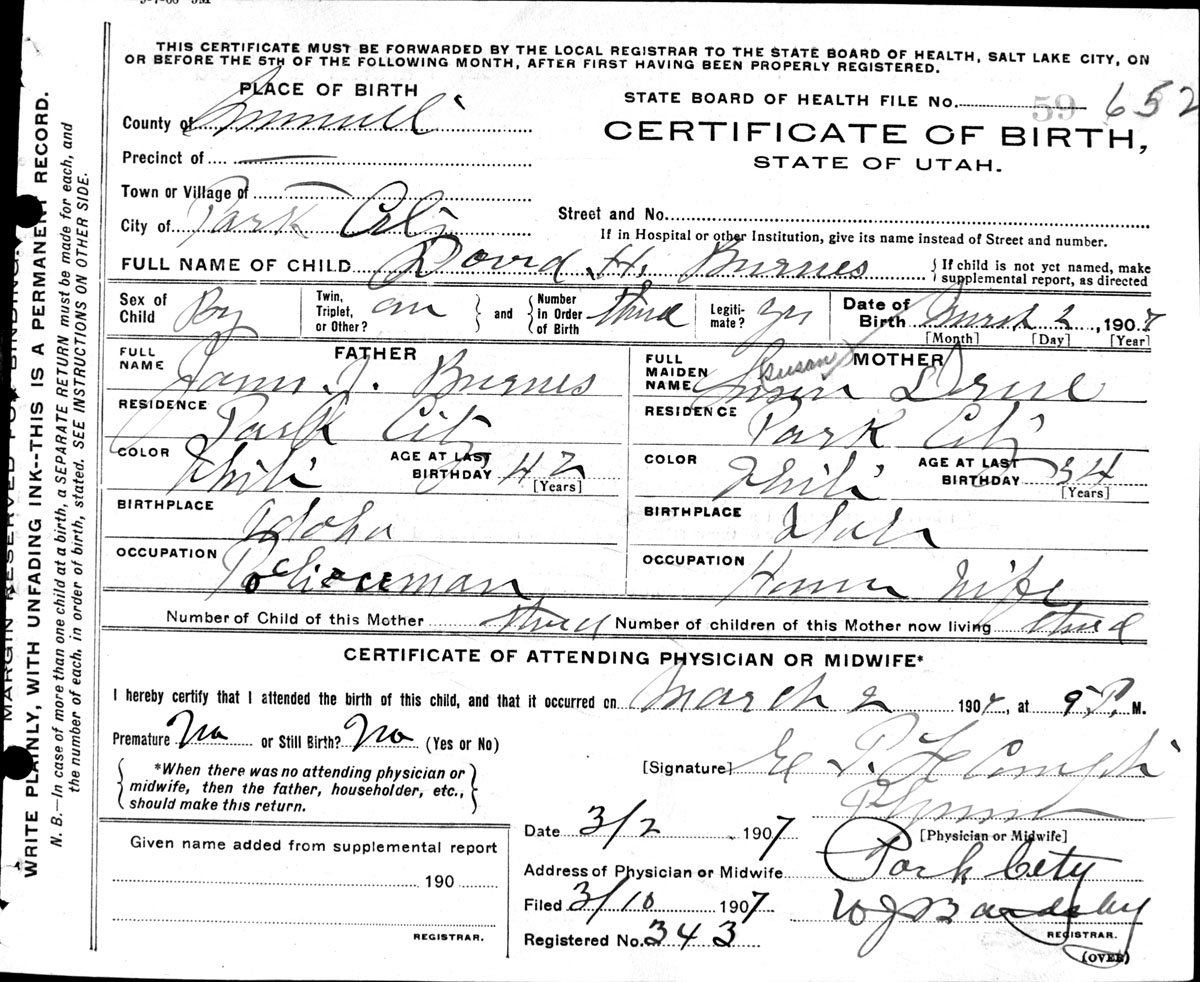 THIS CERTIFICATE MUST BE FORWARDED BY THE LOCAL REGISTRAR TO THE STATE BOARD OF HEALTH, SALT LAKE CITY, ON
OR BEFORE THE 5TH OF THE FOLLOWING MONTH, AFTER FIRST HAVING BEEN PROPERLY REGISTERED.
PLACE OF BIRTH
County of Summit
Precinct of —
Town or Village of —
City of Park City
STATE BOARD OF HEALTH FILE No. 59 652
CERTIFICATE OF BIRTH,
STATE OF UTAH.
Street and No.
If in Hospital or other Institution, give its name instead of Street and number.
FULL NAME OF CHILD David H. Burnes
If child is not yet named, make
supplemental report, as directed
Sex of Child Boy
Twin, Triplet, or Other? one and Number in Order of Birth third
Legitimate? yes
Date of Birth March 2, 1907
[Month] [Day] [Year]
FATHER
FULL NAME J. Burnes
RESIDENCE Park City
COLOR White AGE AT LAST BIRTHDAY 42
[Years]
BIRTHPLACE Idaho
OCCUPATION Policeman
MOTHER
FULL MAIDEN NAME Susan
RESIDENCE Park City
COLOR White AGE AT LAST BIRTHDAY 34
[Years]
BIRTHPLACE Utah
OCCUPATION House Wife
Number of Child of this Mother three Number of children of this Mother now living third
CERTIFICATE OF ATTENDING PHYSICIAN OR MIDWIFE*
I hereby certify that I attended the birth of this child, and that it occurred on March 2 1907, at 9 P. M.
Premature No or Still Birth? No (Yes or No)
*When there was no attending physician or
midwife, then the father, householder, etc.,
should make this return.
[Signature] E P Le Compte
[Physician or Midwife]
Date 3/2 1907
Address of Physician or Midwife Park City
Filed 3/10 1907 W J Bardsley
REGISTRAR.
Registered No. 343
(OVER)
Given name added from supplemental report
190
REGISTRAR.
MARGIN RESERVED FOR BINDING.
WRITE PLAINLY, WITH UNFADING INK--THIS IS A PERMANENT RECORD.
N. B.—In case of more than one child at a birth, a SEPARATE RETURN must be made for each, and
the number of each, in order of birth, stated. SEE INSTRUCTIONS ON OTHER SIDE.